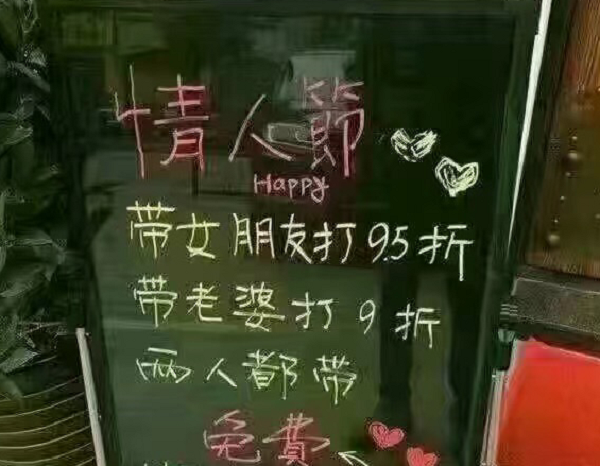 情人節
Happy
带女朋友打9.5折
带老婆打9折
两人都带
免費